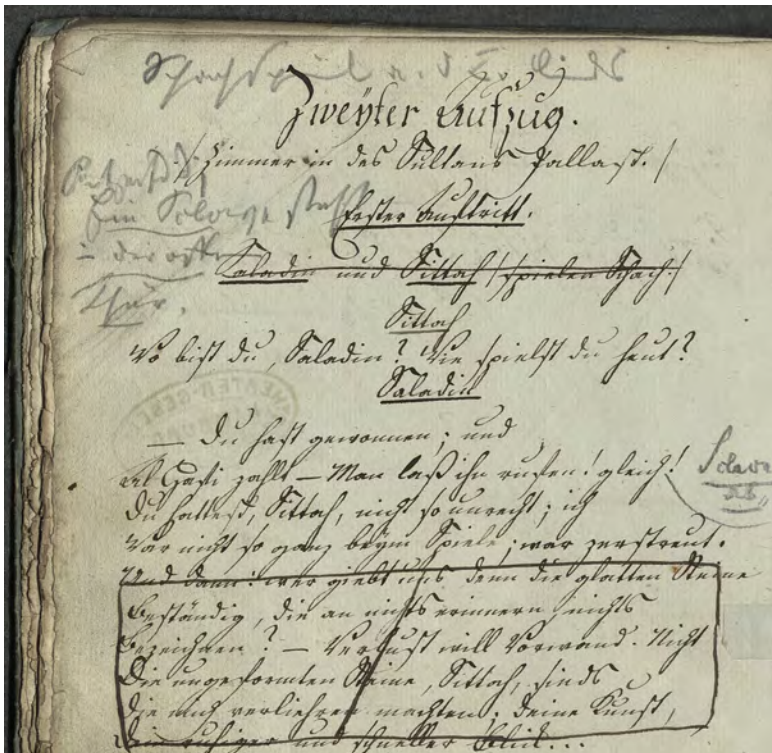 Schachspiel
Zweyter Aufzug.
/:Zimmer in des Sultans Pallast./
Ein Sclave
Erster Auftritt.
in der
Saladin und Sittah /:spielen Schach:/
Thür.
Sittah
Wo bist du, Saladin? Wie spielst du heut?
Saladin
— Du hast gewonnen; und
Al Hafi zahlt — Man laß ihn rufen! gleich!
Sclave
ab
Du hattest, Sittah, nicht so unrecht; ich
War nicht so ganz beym Spiele; war zerstreut.
Und dann: wer giebt uns denn die glatten Steine
Beständig, die an nichts erinnern, nichts
Bezeichnen? — Verlust will Vorwand. Nicht
Die ungeformten Steine, Sittah, sinds
Die mich verliehren machten: deine Kunst,
Dein ruhiger und schneller Blick...